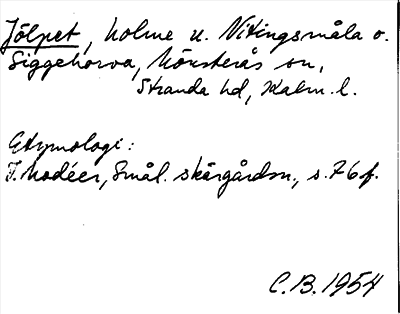 Jölpet, holme u. Nitingsmåla o.
Siggehorva, Mönsterås sn,
Stranda hd, Kalm. l.
Etymologi:
I. Modéer, Smål. skärgårdsn., s. 76 f.
C.B. 1954